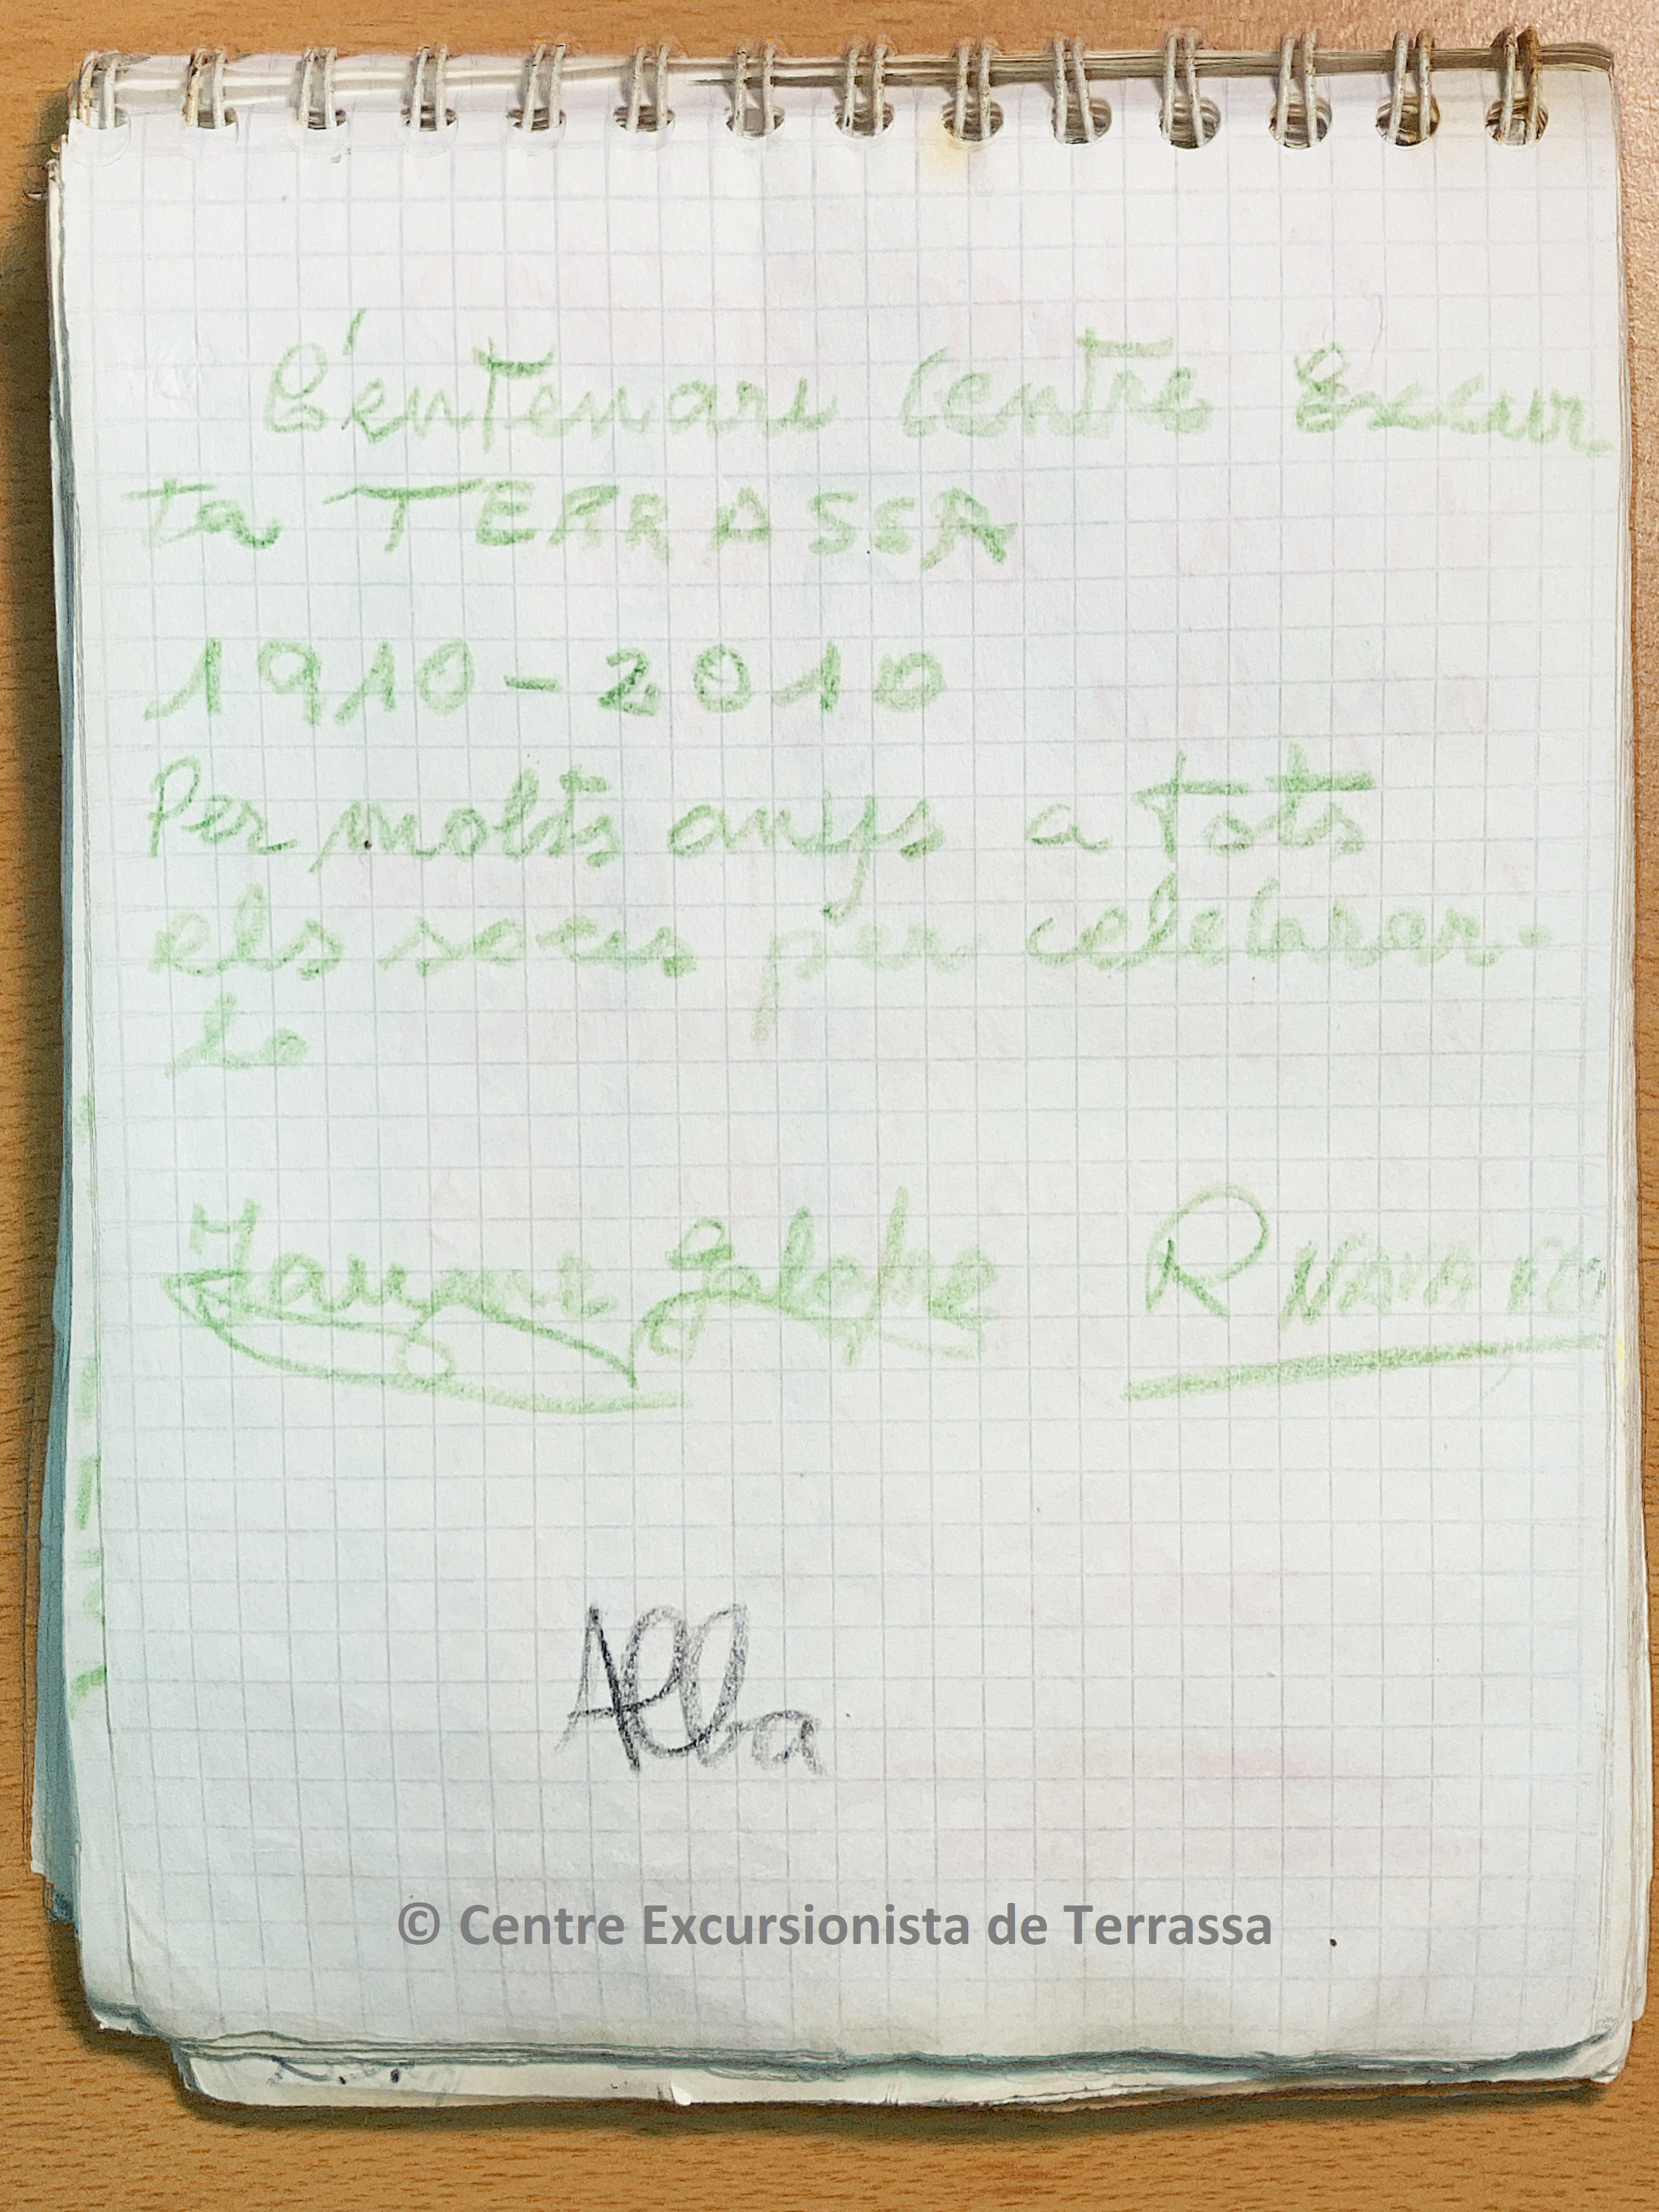 Céntenari Centre Excur
ta TERRASSA
1910-2010
Per molts anys a tots
els socis per celebrar-
lo
Jaume
R
Alba
© Centre Excursionista de Terrassa